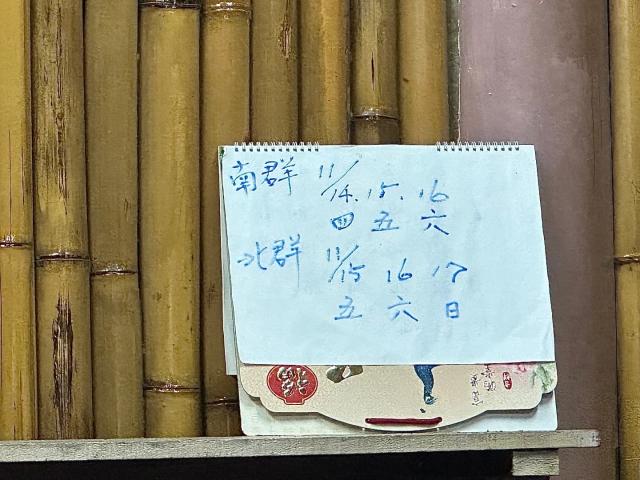 南群 11/14.15.16
四 五 六
北群 11/15 16 17
五 六 日